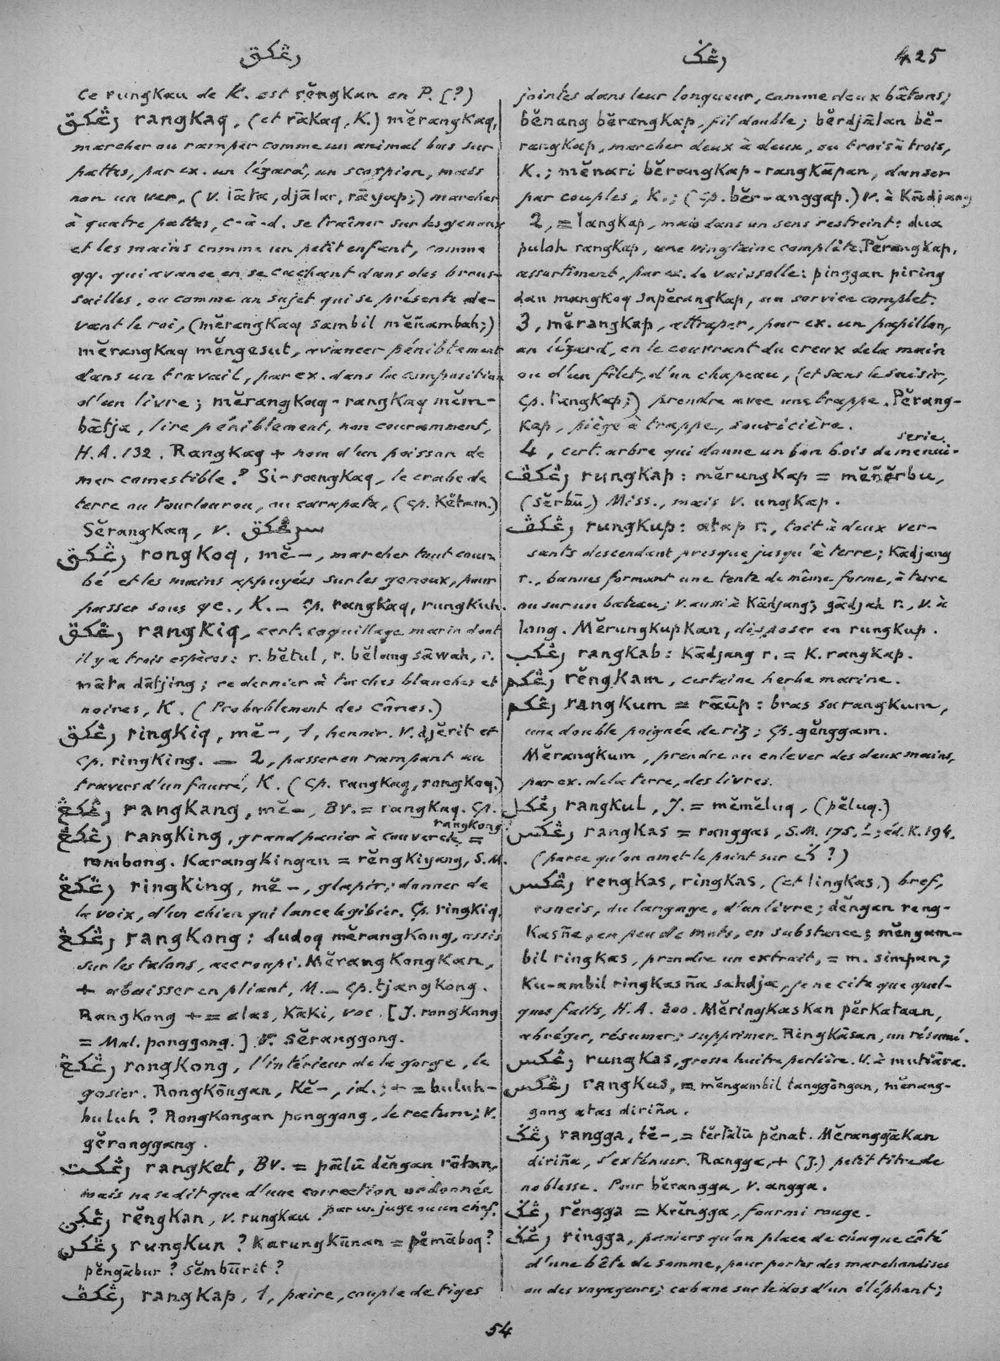 رڠكق
رڠݢ
425
ce rungkau de K. est rĕngkan en P. (?)
رڠكق rangkaq, (et rākaq, K.) mĕrangkaq,
marcher ou ramper comme un animal bas sur
pattes, par ex. un lézard, un scorpion, mais
non un ver, (v. lāta, djālar, rāyap;) marcher
à quatre pattes, c-à-d. se traîner sur les genoux
et les mains comme un petit enfant, comme
qq. qui avance en se cachant dans des brous-
sailles, ou comme un sujet qui se présente de-
vant le roi, (mĕrangkaq sambil mĕñambah;)
mĕrangkaq mĕngesut, avancer péniblement
dans un travail, par ex. dans la composition
d'un livre; mĕrangkaq-rangkaq mĕm-
bātja, lire péniblement, non couramment,
H.A. 132. Rangkaq + nom d'un poisson de
mer comestible? Si-rangkaq, le crabe de
terre ou tourlourou, ou carapata, (cp. Kĕtam.)
Sĕrangkaq, v. سرڠكق
رڠكق rongkoq, mĕ-, marcher tout cour-
bé et les mains appuyées sur les genoux, pour
passer sous qc., K. _ Cp. rangkaq, rungkuh.
رڠكق rangkiq, cert. coquillage marin dont
il y a trois espèces: r. bĕtul, r. bĕlang sāwah, r.
māta dātjing; ce dernier à taches blanches et
noires, K. (Probablement des Cônes.)
رڠكق ringkiq, mĕ-, 1, hennir. V. djĕrit et
cp. ringking. — 2, passer en rampant au
travers d'un fourré, K. (Cp. rangkaq, rongkoq.)
رڠكڠ rangkang, mĕ-, BV. = rangkaq. Cp. rangkong.
رڠكڠ rangking, grand panier à couvercle =
rombong. Karangkingan = rĕngkiyang, S.M.
رڠكڠ ringking, mĕ-, glapir; donner de
la voix, d'un chien qui lance le gibier. Cp. ringkiq.
رڠكڠ rangkong: dudoq mĕrangkong, assis
sur les talons, accroupi. Mĕrangkongkan,
+ abaisser en pliant, M. _ Cp. tjangkong.
Rangkong + = alas, Kāki, voc. [J. rongkong
= Mal. ponggong.] V. Sĕranggong.
رڠكڠ rongkong, l'intérieur de la gorge, le
gosier. Rongkōngan, Kĕ-, id.; + = buluh-
buluh? Rongkongan ponggong, le rectum; v.
gĕronggang.
رڠكت rangket, BV. = pālū dĕngan rōtan,
mais ne se dit que d'une correction ordonnée
par un juge ou un chef.
رڠكن rĕngkan, v. rungkau.
رڠكن rungkun? Karungkūnan = pĕmāboq?
pĕngābur? Sĕmbūrit?
رڠكڤ rangkap, 1, paire, couple de tiges
jointes dans leur longueur, comme deux bâtons;
bĕnang bĕrangkap, fil double; bĕrdjālan bĕ-
rangkap, marcher deux à deux, ou trois à trois,
K.; mĕnari bĕrangkap-rangkāpan, danser
par couples, K.; (cp. bĕr-anggap.) V. à Kādjang
2, = langkap, mais dans un sens restreint: dua
puloh rangkap, une vingtaine complète. Pĕrangkap,
assortiment, par ex. de vaisselle: pinggan piring
dan mangkoq sapĕrangkap, un service complet.
3, mĕrangkap, attraper, pour ex. un papillon,
un lézard, en le couvrant du creux de la main
ou d'un filet, d'un chapeau, (et sans le saisir,
cp. tangkap;) prendre avec une trappe. Pĕrang-
kap, piège à trappe, souricière.
4, cert. arbre qui donne un bon bois de menui-
serie.
رڠكڤ rungkap: mĕrungkap = mĕñĕrbu,
(Sĕrbū,) Miss., mais v. ungkap.
رڠكڤ rungkup: atap r., toit à deux ver-
sants descendant presque jusqu'à terre; Kādjang
r., bannes formant une tente de même forme, à terre
ou sur un bateau; v. aussi à Kādjang; gādjah r., v. à
lang. Mĕrungkupkan, disposer en rungkup.
رڠكب rangkab: Kādjang r. = K. rangkap.
رڠكم rĕngkam, certaine herbe marine.
رڠكم rangkum = rāūp: bras sarangkum,
une double poignée de riz; Cp. gĕnggam.
Mĕrangkum, prendre ou enlever des deux mains,
par ex. de la terre, des livres.
رڠكل rangkul, J. = mĕmĕluq, (pĕluq.)
رڠكس rangkas = ranggas, S.M. 175. L; éd. K. 194.
(parce qu'on omet le point sur ݢ ?)
رڠكس rengkas, ringkas, (et lingkas,) bref,
concis, du langage, d'un livre; dĕngan reng-
kasña, en peu de mots, en substance; mĕngam-
bil ringkas, prendre un extrait, = m. simpan;
Ku-ambil ringkasña sahdja, je ne cite que quel-
ques faits, H.A. 200. Mĕringkaskan pĕrkataan,
abréger, résumer; supprimer. Ringkāsan, un résumé.
رڠكس rungkas, grosse huître perlière. V. à mutiāra.
رڠكس rangkus, = mĕngambil tanggōngan, mĕnang-
gong atas diriña.
رڠݢ rangga, tĕ-, = tĕrlālū pĕnat. Mĕranggākan
diriña, s'exténuer. Rangga, + (J.) petit titre de
noblesse. Pour bĕrangga, v. angga.
رڠݢ rĕngga = Krĕngga, fourmi rouge.
رڠݢ ringga, paniers qu'on place de chaque côté
d'une bête de somme, pour porter des marchandises
ou des voyageurs; cabane sur le dos d'un éléphant;
54